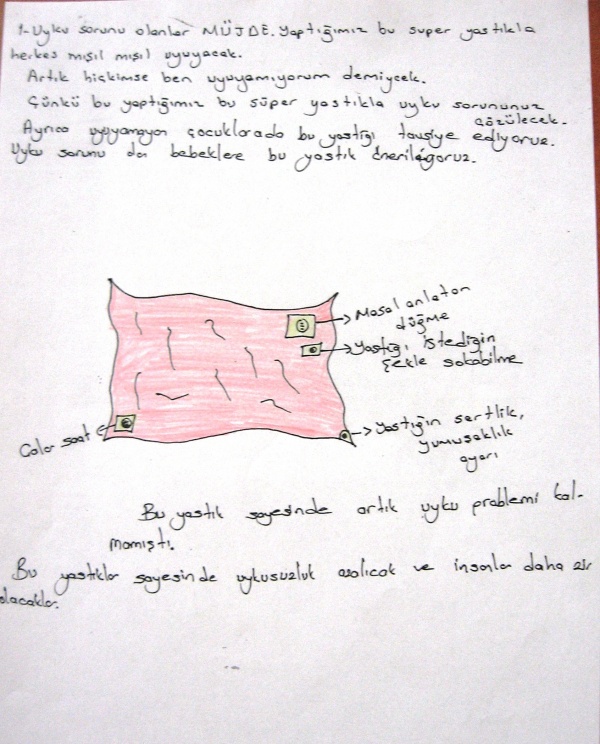 1-Uyku sorunu olanlar MÜJDE. Yaptığımız bu super yastıkla
herkes mışıl mışıl uyuyacak.
Artık hiçkimse ben uyuyamıyorum demiycek.
Çünkü bu yaptığımız bu süper yastıkla uyku sorununuz
çözülecek.
Ayrıca uyuyamayan çocuklarada bu yastığı tavsiye ediyoruz.
Uyku sorunu da bebeklere bu yastık öneriliyoruz.
Masal anlatan
düğme
Yastığı istediğin
şekle sokabilme
Yastığın sertlik,
yumuşaklık
ayarı
Calar saat
Bu yastık sayesinde artık uyku problemi kal-
mamıştı.
Bu yastıklar sayesinde uykusuzluk azalıcak ve insanlar daha zir
olacaklar.